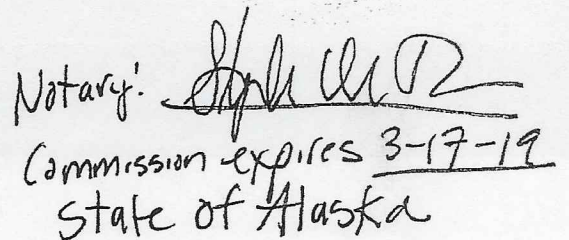 Notary:
Commission expires 3-17-19
State of Alaska